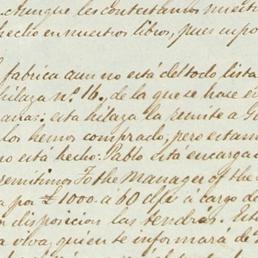 Aunque les contestamos nuestr
hecho en nuestros libros, pues impo
fabrica aun no está del todo lista
hilaza nº 16, de la que se hace
esta hilaza la remite a
los hemos comprado, pero estam
no está hecho: Pablo está encarga
remitimos To the manager of the
a por £1000 a 60 d/v a cargo de
disposicion las tendras. Est
a Olva, quien te informará de